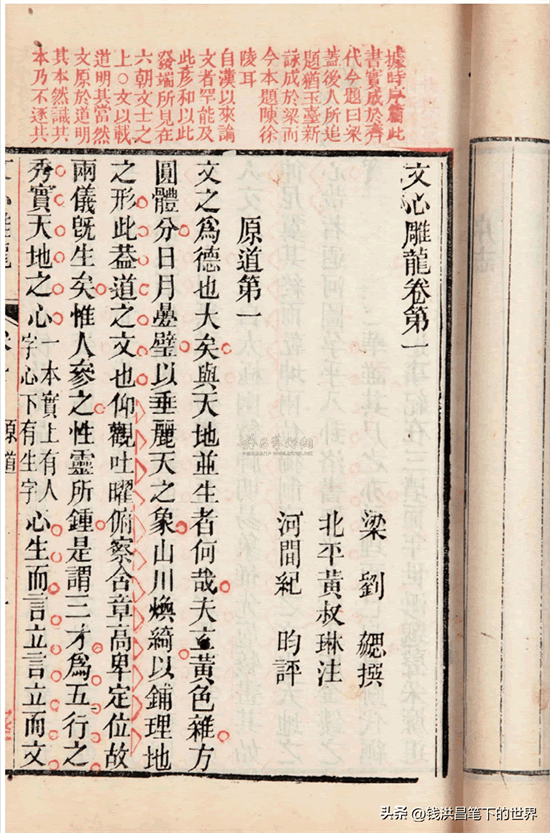 據時序篇此
書實成於齊
代今題曰梁
蓋後人所追
題猶玉臺新
詠成於梁而
今本題陳徐
陵耳
自漢以來論
文者罕能及
此彥和以此
發端所見在
六朝文士之
上○文以載
道明其當然
文原於道明
其本然識其
本乃不逐其
文心雕龍卷第一
梁 劉 勰撰
北平黃叔琳注
河間紀 昀評
原道第一
文之爲德也大矣與天地並生者何哉夫玄黃色雜方
圓體分日月疊璧以垂麗天之象山川煥綺以鋪理地
之形此葢道之文也仰觀吐曜俯察含章高卑定位故
兩儀旣生矣惟人參之性靈所鍾是謂三才爲五行之
秀實天地之心一本實上有人字心下有生字心生而言立言立而文
文心雕龍
原道
头条 @钱洪昌笔下的世界